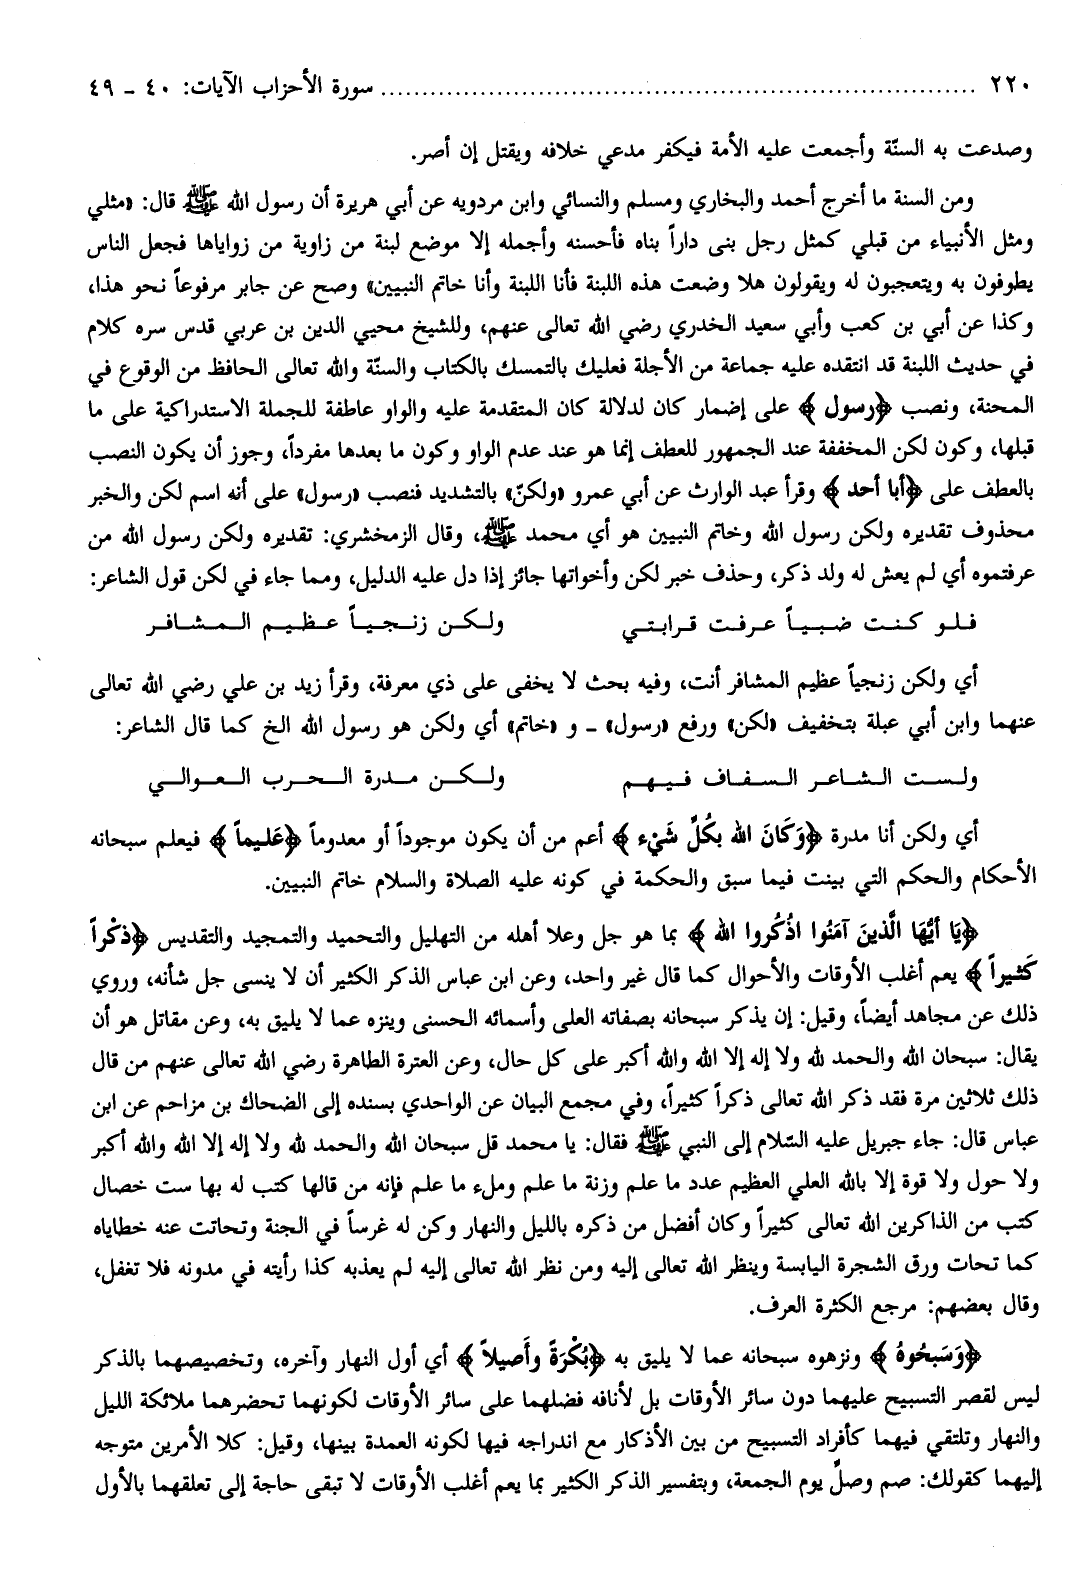 ٢٢٠ ........................................................................ سورة الأحزاب الآيات: ٤٠ ـ ٤٩
وصدعت به السنّة وأجمعت عليه الأمة فيكفر مدعي خلافه ويقتل إن أصر.
ومن السنة ما أخرج أحمد والبخاري ومسلم والنسائي وابن مردويه عن أبي هريرة أن رسول الله ﷺ قال: «مثلي
ومثل الأنبياء من قبلي كمثل رجل بنى داراً بناه فأحسنه وأجمله إلا موضع لبنة من زاوية من زواياها فجعل الناس
يطوفون به ويتعجبون له ويقولون هلا وضعت هذه اللبنة فأنا اللبنة وأنا خاتم النبيين» وصح عن جابر مرفوعاً نحو هذا،
وكذا عن أبي بن كعب وأبي سعيد الخدري رضي الله تعالى عنهم، وللشيخ محيي الدين بن عربي قدس سره كلام
في حديث اللبنة قد انتقده عليه جماعة من الأجلة فعليك بالتمسك بالكتاب والسنّة والله تعالى الحافظ من الوقوع في
المحنة، ونصب ﴿رسول﴾ على إضمار كان لدلالة كان المتقدمة عليه والواو عاطفة للجملة الاستدراكية على ما
قبلها، وكون لكن المخففة عند الجمهور للعطف إنما هو عند عدم الواو وكون ما بعدها مفرداً، وجوز أن يكون النصب
بالعطف على ﴿أبا أحد﴾ وقرأ عبد الوارث عن أبي عمرو «ولكنّ» بالتشديد فنصب «رسول» على أنه اسم لكن والخبر
محذوف تقديره ولكن رسول الله وخاتم النبيين هو أي محمد ﷺ، وقال الزمخشري: تقديره ولكن رسول الله من
عرفتموه أي لم يعش له ولد ذكر، وحذف خبر لكن وأخواتها جائز إذا دل عليه الدليل، ومما جاء في لكن قول الشاعر:
فلو كنت ضبياً عرفت قرابتي ولكن زنجياً عظيم المشافر
أي ولكن زنجياً عظيم المشافر أنت، وفيه بحث لا يخفى على ذي معرفة، وقرأ زيد بن علي رضي الله تعالى
عنهما وابن أبي عبلة بتخفيف «لكن» ورفع «رسول» ـ و «خاتم» أي ولكن هو رسول الله الخ كما قال الشاعر:
ولست الشاعر السفاف فيهم ولكن مدرة الحرب العوالي
أي ولكن أنا مدرة ﴿وَكَانَ الله بكُلِّ شَيْء﴾ أعم من أن يكون موجوداً أو معدوماً ﴿عَليماً﴾ فيعلم سبحانه
الأحكام والحكم التي بينت فيما سبق والحكمة في كونه عليه الصلاة والسلام خاتم النبيين.
﴿يَا أيُّهَا الَّذينَ آمَنُوا اذْكُروا الله﴾ بما هو جل وعلا أهله من التهليل والتحميد والتمجيد والتقديس ﴿ذكْراً
كَثيراً﴾ يعم أغلب الأوقات والأحوال كما قال غير واحد، وعن ابن عباس الذكر الكثير أن لا ينسى جل شأنه، وروي
ذلك عن مجاهد أيضاً، وقيل: إن يذكر سبحانه بصفاته العلى وأسمائه الحسنى وينزه عما لا يليق به، وعن مقاتل هو أن
يقال: سبحان الله والحمد لله ولا إله إلا الله والله أكبر على كل حال، وعن العترة الطاهرة رضي الله تعالى عنهم من قال
ذلك ثلاثين مرة فقد ذكر الله تعالى ذكراً كثيراً، وفي مجمع البيان عن الواحدي بسنده إلى الضحاك بن مزاحم عن ابن
عباس قال: جاء جبريل عليه السّلام إلى النبي ﷺ فقال: يا محمد قل سبحان الله والحمد لله ولا إله إلا الله والله أكبر
ولا حول ولا قوة إلا بالله العلي العظيم عدد ما علم وزنة ما علم وملء ما علم فإنه من قالها كتب له بها ست خصال
كتب من الذاكرين الله تعالى كثيراً وكان أفضل من ذكره بالليل والنهار وكن له غرساً في الجنة وتحاتت عنه خطاياه
كما تحات ورق الشجرة اليابسة وينظر الله تعالى إليه ومن نظر الله تعالى إليه لم يعذبه كذا رأيته في مدونه فلا تغفل،
وقال بعضهم: مرجع الكثرة العرف.
﴿وَسَبحُوهُ﴾ ونزهوه سبحانه عما لا يليق به ﴿بُكْرَةً وأَصيلاً﴾ أي أول النهار وآخره، وتخصيصهما بالذكر
ليس لقصر التسبيح عليهما دون سائر الأوقات بل لأنافه فضلهما على سائر الأوقات لكونهما تحضرهما ملائكة الليل
والنهار وتلتقي فيهما كأفراد التسبيح من بين الأذكار مع اندراجه فيها لكونه العمدة بينها، وقيل: كلا الأمرين متوجه
إليهما كقولك: صم وصلِّ يوم الجمعة، وبتفسير الذكر الكثير بما يعم أغلب الأوقات لا تبقى حاجة إلى تعلقهما بالأول